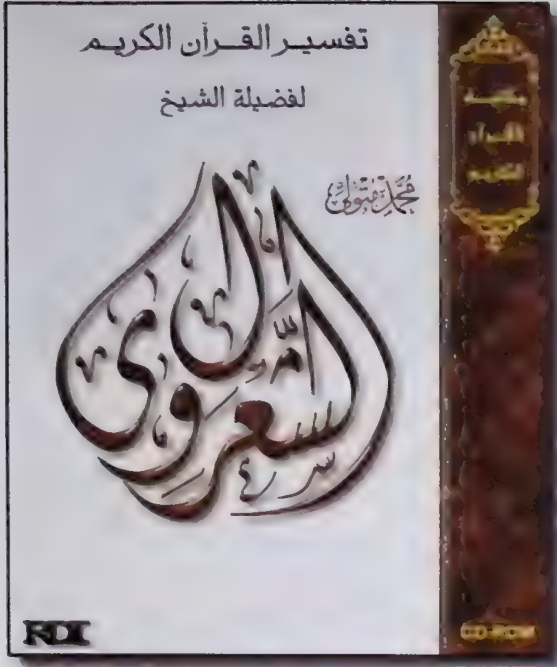 تفسير القرآن الكريم
لفضيلة الشيخ
محمد متولي
الشعراوي
القرآن
الكريم
RDI
CD-ROM